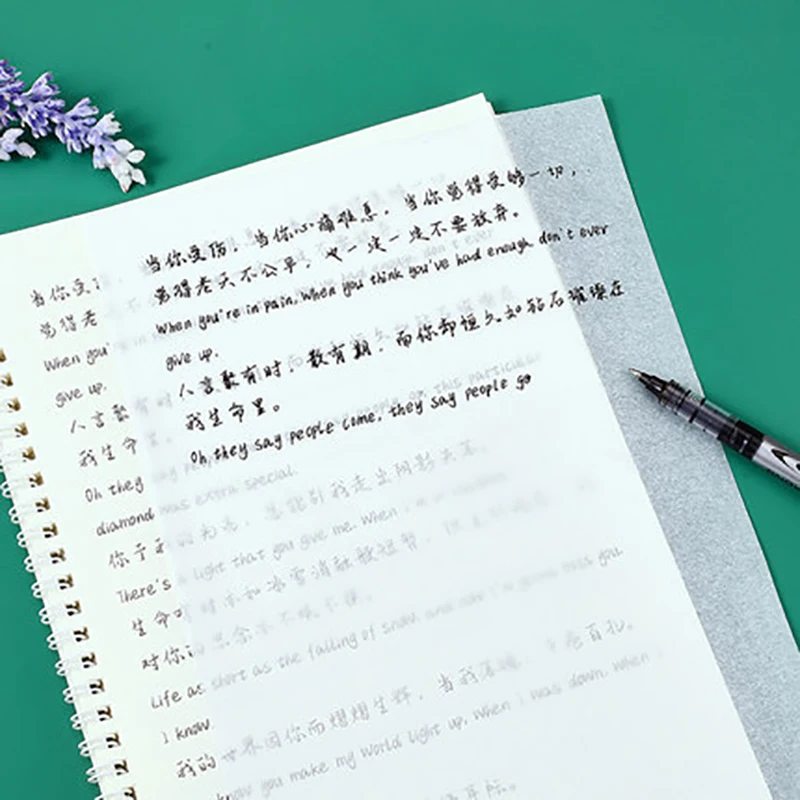 当你受伤，当你心痛难息，当你觉得受够一切，
觉得老天不公平，也一定一定不要放弃。
When you're in pain. When you think you've had enough don't ever
give up.
人言聚有时，散有期，而你却恒久如钻石璀璨在
我生命里。
Oh, they say people come, they say people go
当你受
觉得老
When you'
give up.
人言聚有时
我生命里。
Oh they say
diamond was extra special.
你予我的光亮，总能引我走出阴影失落。
There's a light that you give me. When
生命 时不如冰雪消融般短暂，
对你的思念永不
Life as short as the falling of snow. and now I'm gonna miss you.
I know
我的世界因你而熠熠生辉，当我落魄， 百孔。
know you make my world light up, When I was down. When I